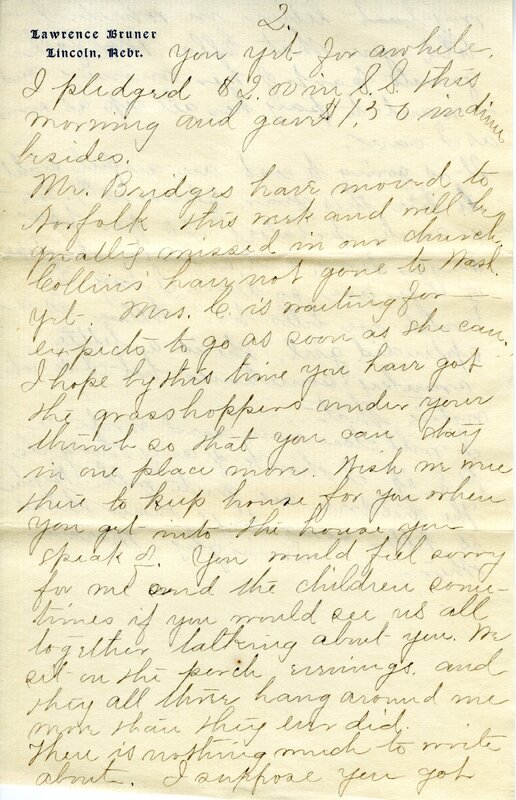 2.
Lawrence Bruner
Lincoln, Nebr.
you yet for awhile.
I pledged $2.00 in S.S. this
morning and gave $1.30 in dimes
besides.
Mr. Bridges have moved to
Norfolk this week and will be
greatly missed in our church.
Collins' have not gone to Wash.
yet. Mrs. C. is waiting for
expects to go as soon as she can.
I hope by this time you have got
the grasshoppers under your
thumb so that you can stay
in one place more. Wish we were
there to keep house for you when
you get into the house you
speak of. You would feel sorry
for me and the children some-
times if you would see us all
together talking about you. We
sit on the porch evenings and
they all three hang around me
more than they ever did.
There is nothing much to write
about. I suppose you got